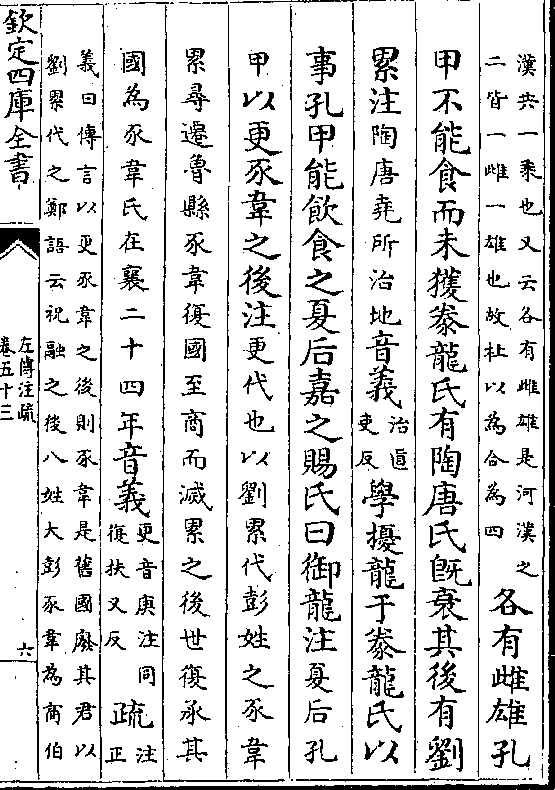 漢共一乘也又云各有雌雄是河漢之
二皆一雌一雄也故杜以為合為四
各有雌雄孔
甲不能食而未獲豢龍氏有陶唐氏旣衰其後有劉
累注陶唐堯所治地音義治直
吏反
學擾龍于豢龍氏以
事孔甲能飲食之夏后嘉之賜氏曰御龍注夏后孔
甲以更豕韋之後注更代也以劉累代彭姓之豕韋
累尋遷魯縣豕韋復國至商而滅累之後世復承其
國為豕韋氏在襄二十四年音義更音庚注同
復扶又反
疏注
正
義曰傳言以更豕韋之後則豕韋是舊國廢其君以
劉累代之鄭語云祝融之後八姓大彭豕韋為商伯
欽定四庫全書
左傳注疏
卷五十三
六